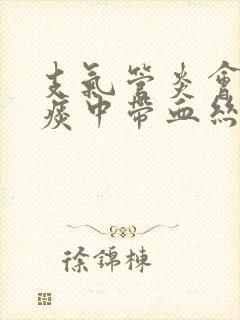 支氣管炎會
痰中帶血絲
徐錦棟